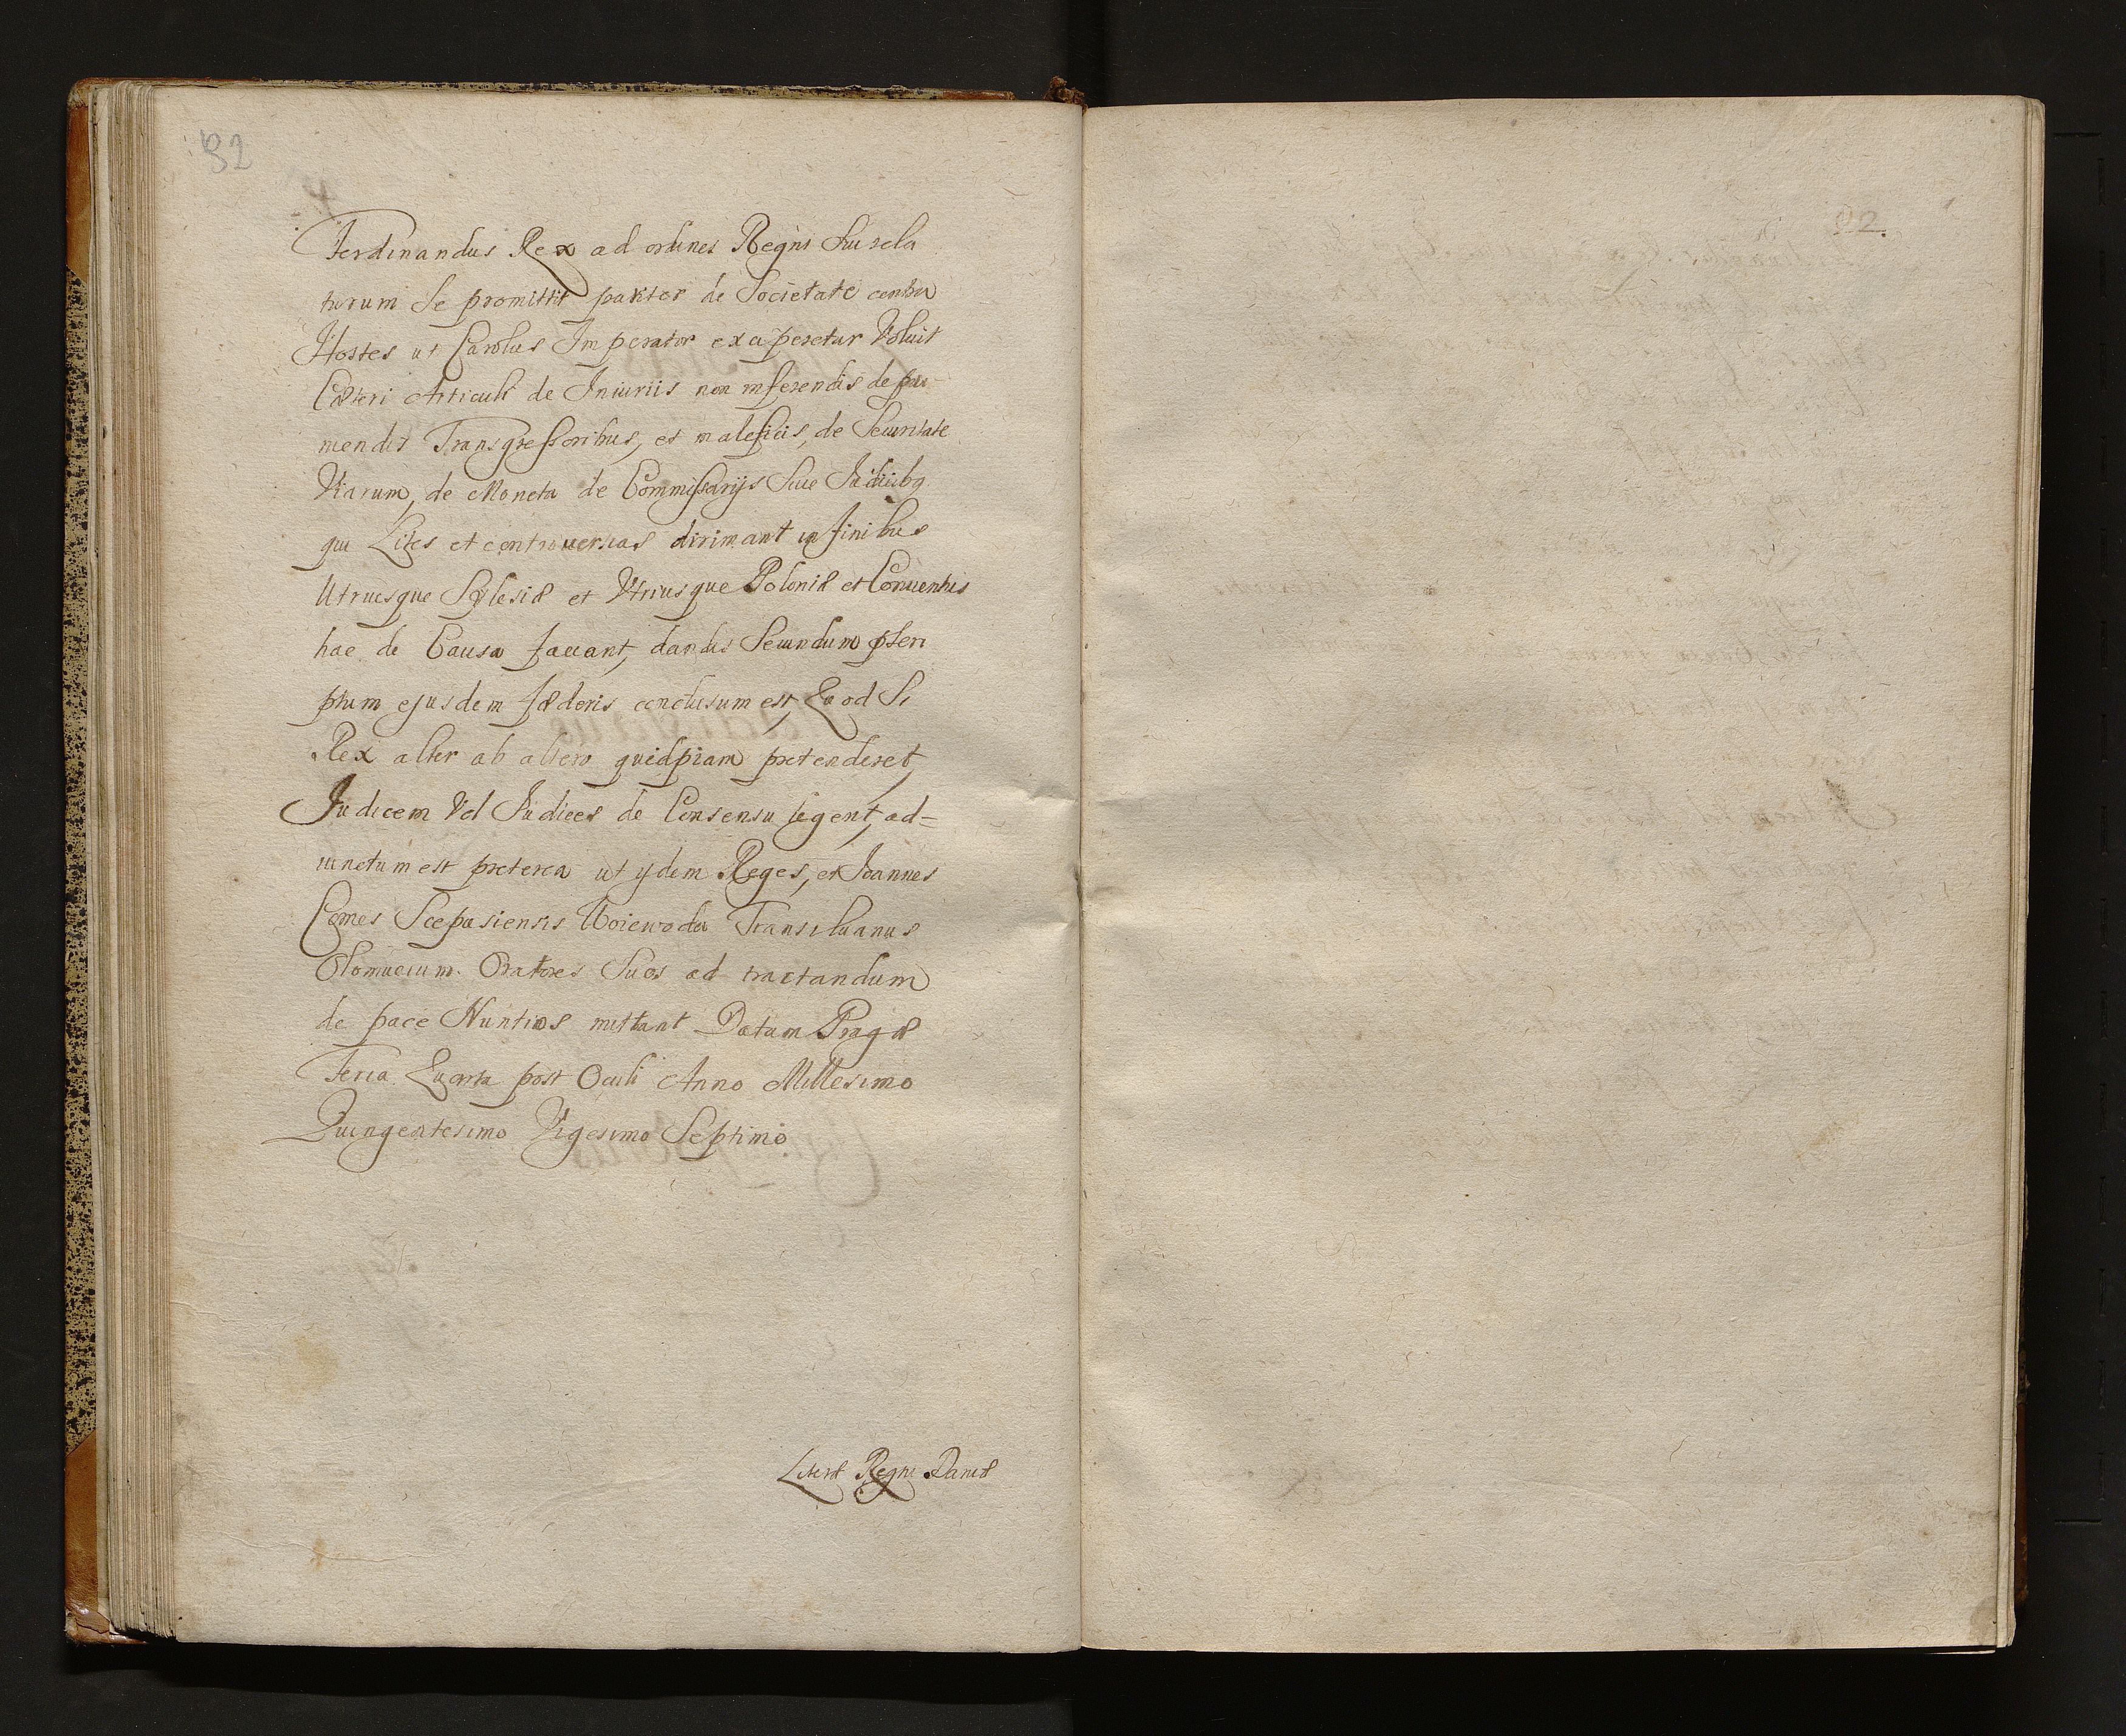 82
Ferdinandus Rex ad ordines Regni sui rela
turum se promittit pariter de Societate contra
Hostes ut Carolus Imperator exciperetur Voluit
Cæteri Articuli de Iniuriis non inferendis de pu
niendis Transgressoribus, et maleficiis, de Securitate
Viarum, de Moneta de Commissarijs Siue Iudicibq
qui Lites et controuersias dirimant in finibus
Utriusque Sylesiæ et Vtriusque Poloniæ et Conuentus
hac de Causa faciant, dandis Secundum pscri
ptum ejusdem fæderis conclusum est, Quod Si
Rex alter ab altero quidpiam pretenderet,
Judicem Vel Iudices de Consensu legent, ad=
iunctum est preterea ut ijdem Reges, et Ioannes
Comes Scepusiensis Woiewoda Transiluanus
Olomucium Oratores Suos ad tractandum
de pace Nuntios mittant Datum Pragæ
Feria Quarta post Oculi Anno Millesimo
Quingentesimo Vigesimo Septimo
Literæ Regni Daniæ